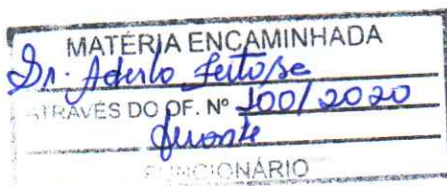 MATÉRIA ENCAMINHADA
Dr. Aderlo Feitosa
ATRAVÉS DO OF. Nº 100/2020
FUNCIONÁRIO